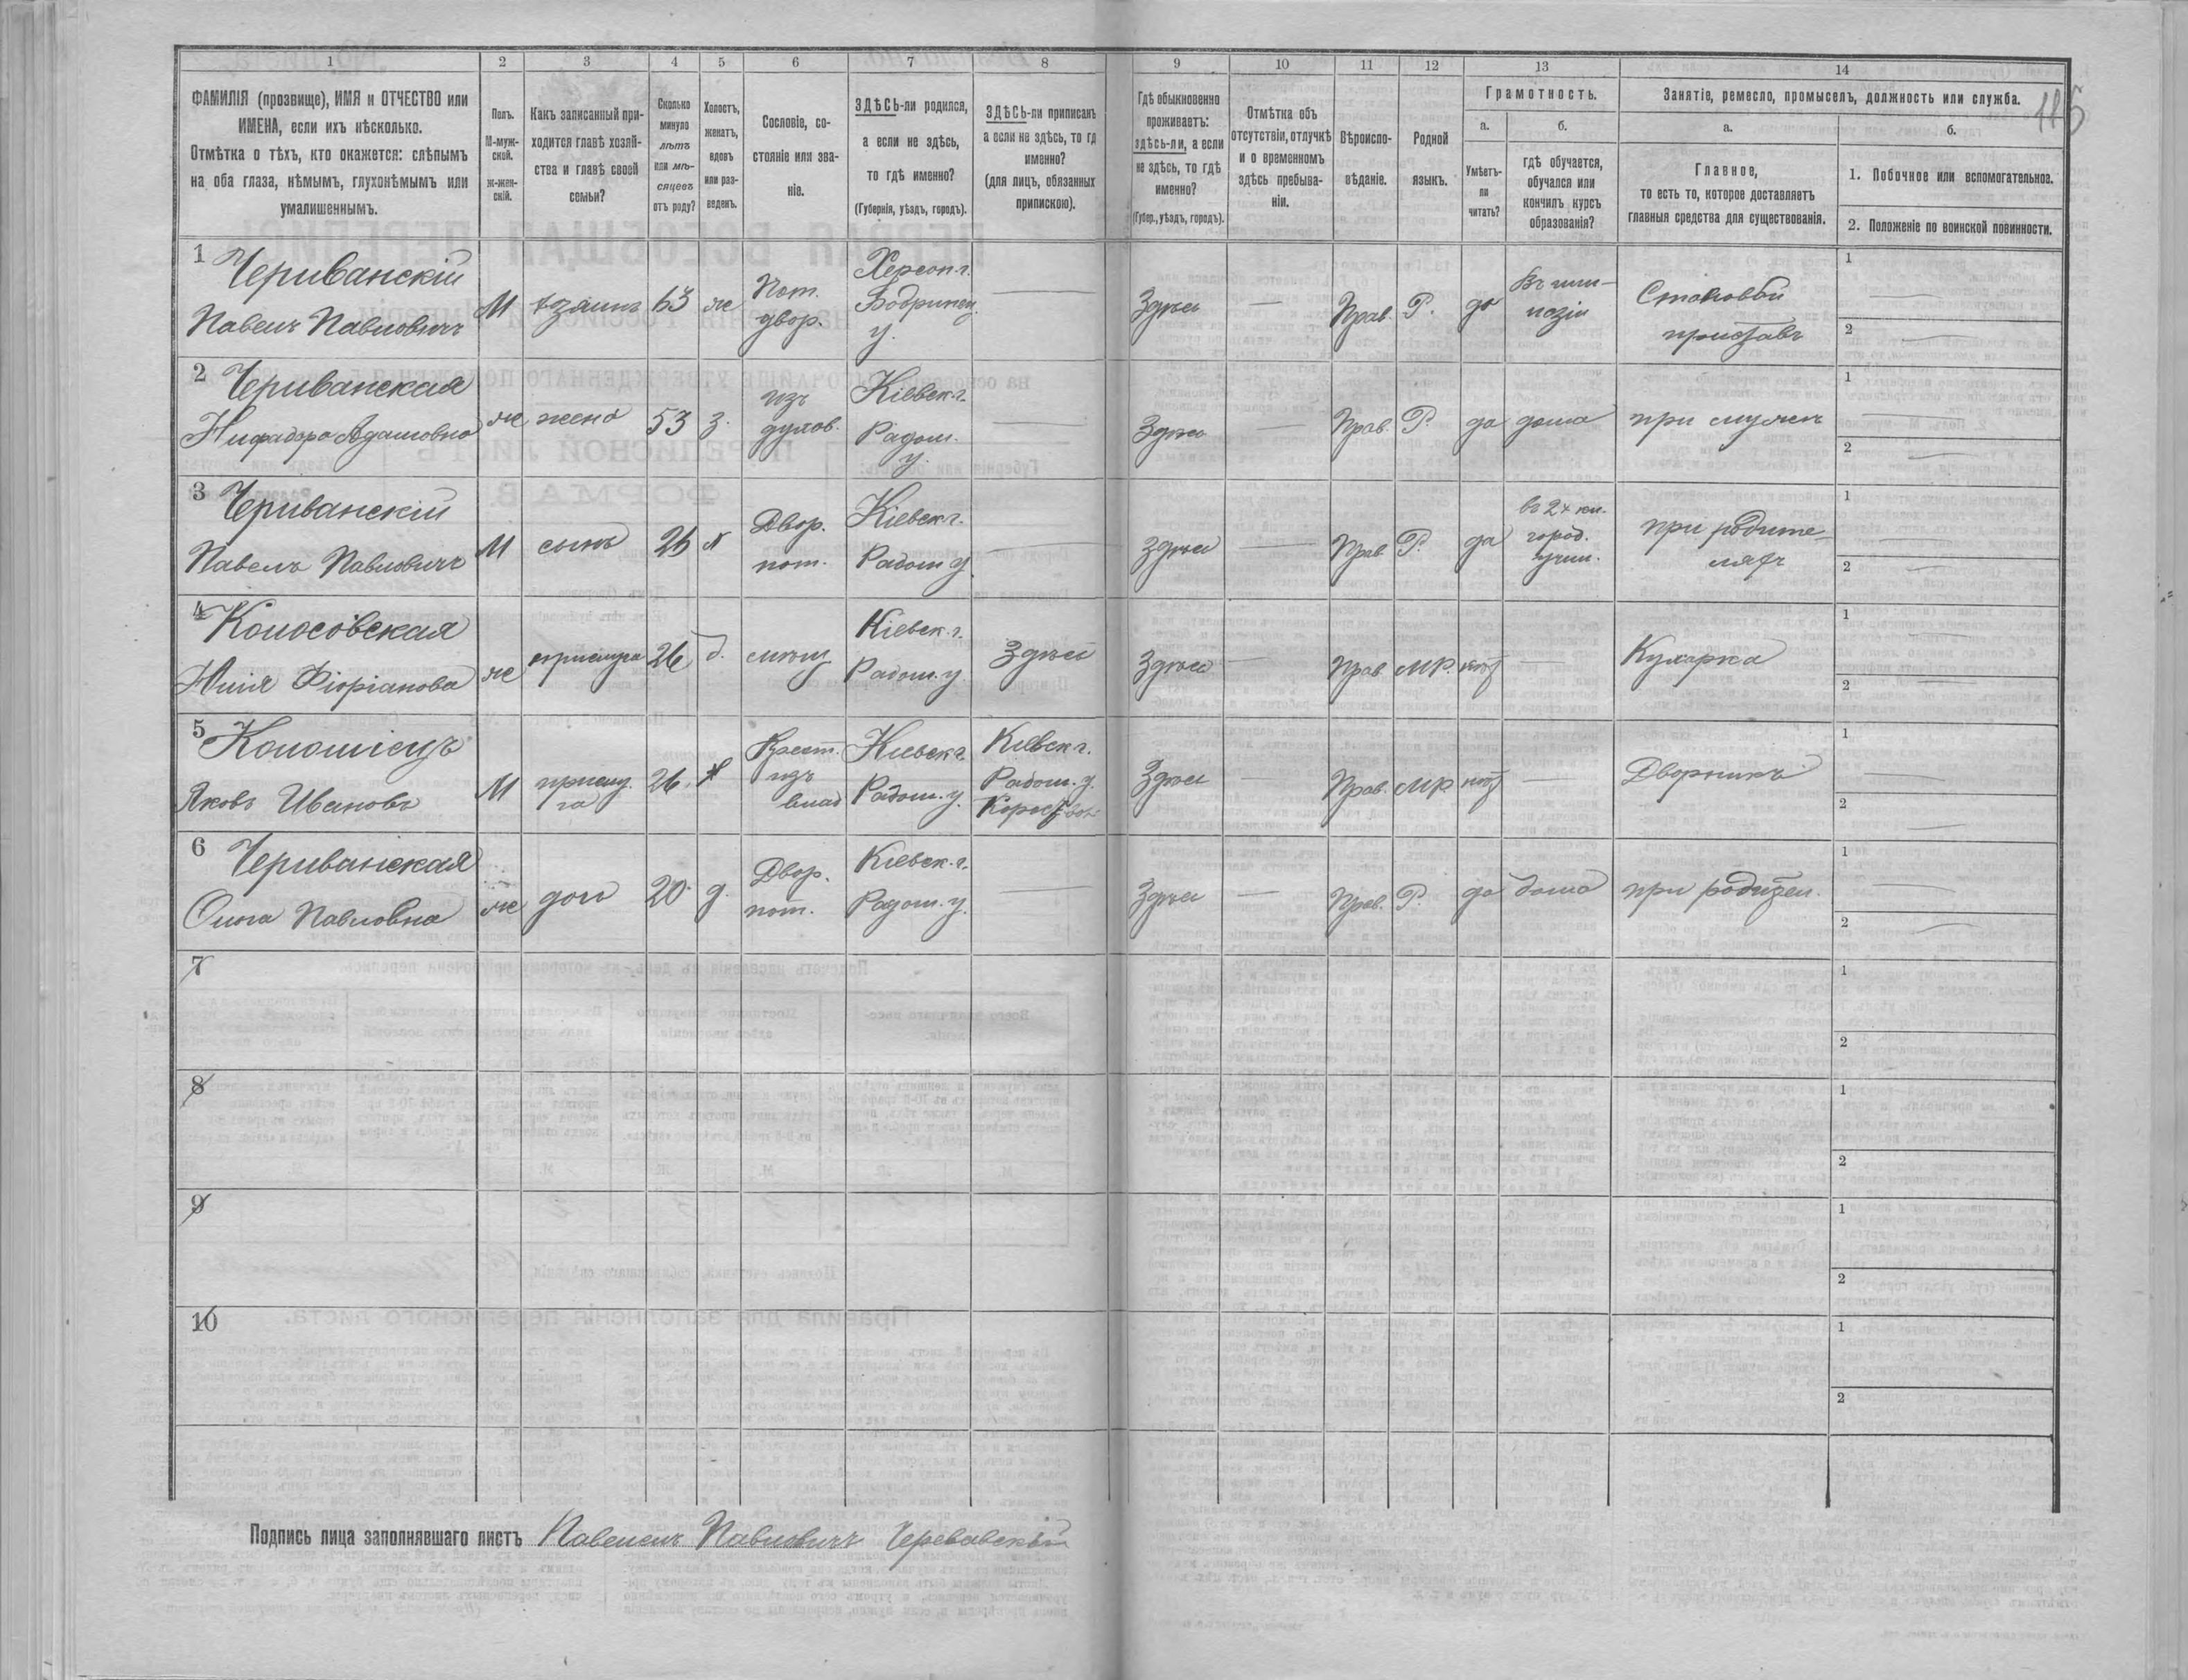 1 2 3 4 5 6 7 8 9 10 11 12 13 14
115
ФАМИЛІЯ (прозвище), ИМЯ и ОТЧЕСТВО или
ИМЕНА, если ихъ нѣсколько.
Отмѣтка о тѣхъ, кто окажется: слѣпымъ
на оба глаза, нѣмымъ, глухонѣмымъ или
умалишеннымъ.
Полъ.
М-муж-
ской.
ж-жен-
скій.
Какъ записанный при-
ходится главѣ хозяй-
ства и главѣ своей
семьи?
Сколько
минуло
лѣтъ
или мѣ-
сяцевъ
отъ роду?
Холостъ,
женатъ,
вдовъ
или раз-
веденъ.
Сословіе, со-
стояніе или зва-
ніе.
ЗДѢСЬ-ли родился,
а если не здѣсь,
то гдѣ именно?
(Губернія, уѣздъ, городъ).
ЗДѢСЬ-ли приписанъ
а если не здѣсь, то гд
именно?
(для лицъ, обязанных
припискою).
Гдѣ обыкновенно
проживаетъ:
здѣсь-ли, а если
не здѣсь, то гдѣ
именно?
(Губер., уѣздъ, городъ).
Отмѣтка объ
отсутствіи, отлучкѣ
и о временномъ
здѣсь пребыва-
ніи.
Вѣроиспо-
вѣданіе.
Родной
языкъ.
Грамотность.
а.
Умѣетъ-
ли
читать?
б.
гдѣ обучается,
обучался или
кончилъ курсъ
образованія?
Занятіе, ремесло, промыселъ, должность или служба.
а.
Главное,
то есть то, которое доставляетъ
главныя средства для существованія.
б.
1. Побочное или вспомогательное.
2. Положеніе по воинской повинности.
1 Чериванскій
Павелъ Павловичъ
М
хозяинъ
63
ж
Пот.
двор.
Херсон. г.
Бобринец.
у.
Здѣсь
Прав.
Р.
да
Въ гим-
назіи
Становой
приставъ
1
2
2 Чериванская
Адамовна
ж
жена
53
з.
изъ
духов.
Кіевск. г.
Радом.
у.
Здѣсь
Прав.
Р.
да
дома
при мужѣ
1
2
3 Чериванскій
Павелъ Павловичъ
М
сынъ
26
х
Двор.
пот.
Кіевск. г.
Радом у.
Здѣсь
Прав
Р.
да
въ 2х кл.
город.
учил.
при родите
ляхъ
1
2
4 Колосовская
Юлія Фіоріанова
ж
прислуга
26
д.
мѣщ
Кіевск. г.
Радом. у.
Здѣсь
Здѣсь
Прав
МР.
нѣт
Кухарка
1
2
5 Коломіецъ
Яковъ Ивановъ
М
прислу
га
26.
х
Крест.
изъ
влад
Кіевск г.
Радом. у.
Кіевск г.
Радом. у.
Здѣсь
Прав.
МР.
нѣт
Дворникъ
1
2
6 Чериванская
Ольга Павловна
ж
доч
20
д.
Двор.
пот.
Кіевск. г.
Радом. у.
Здѣсь
Прав.
Р.
да
дома
при родител.
1
2
7
1
2
8
1
2
9
1
2
10
1
2
Подпись лица заполнявшаго листъ Павелъ Павловичъ Черевавскій